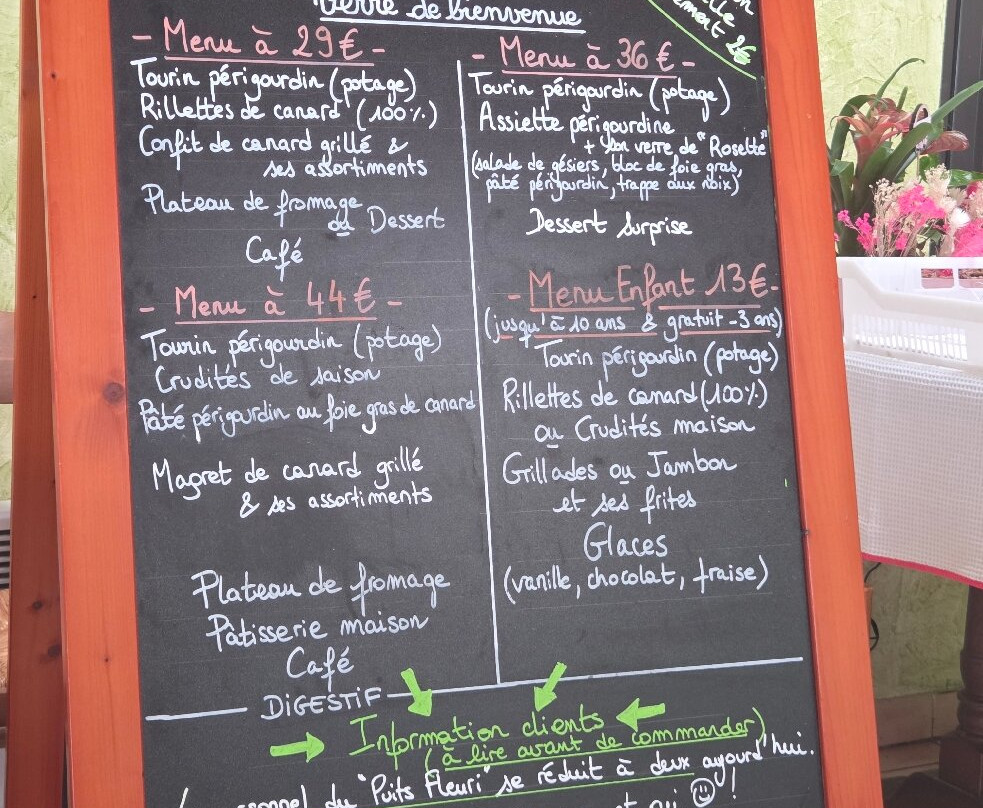 Verre de bienvenue
- Menu à 29€ -
Tourin périgourdin (potage)
Rillettes de canard (100%)
Confit de canard grillé &
ses assortiments
Plateau de fromage
ou Dessert
Café
- Menu à 36€ -
Tourin périgourdin (potage)
Assiette périgourdine
+ son verre de "Rosette"
(salade de gésiers, bloc de foie gras,
pâté périgourdin, trappe aux noix)
Dessert Surprise
- Menu à 44€ -
Tourin périgourdin (potage)
Crudités de saison
Pâté périgourdin au foie gras de canard
Magret de canard grillé
& ses assortiments
Plateau de fromage
Pâtisserie maison
Café
- Menu Enfant 13€ -
(jusqu'à 10 ans & gratuit -3 ans)
Tourin périgourdin (potage)
Rillettes de canard (100%)
ou Crudités maison
Grillades ou Jambon
et ses frites
Glaces
(vanille, chocolat, fraise)
DiGESTiF
Information clients
(à lire avant de commander)
du "Puits Fleuri" se réduit à deux aujourd'hui.